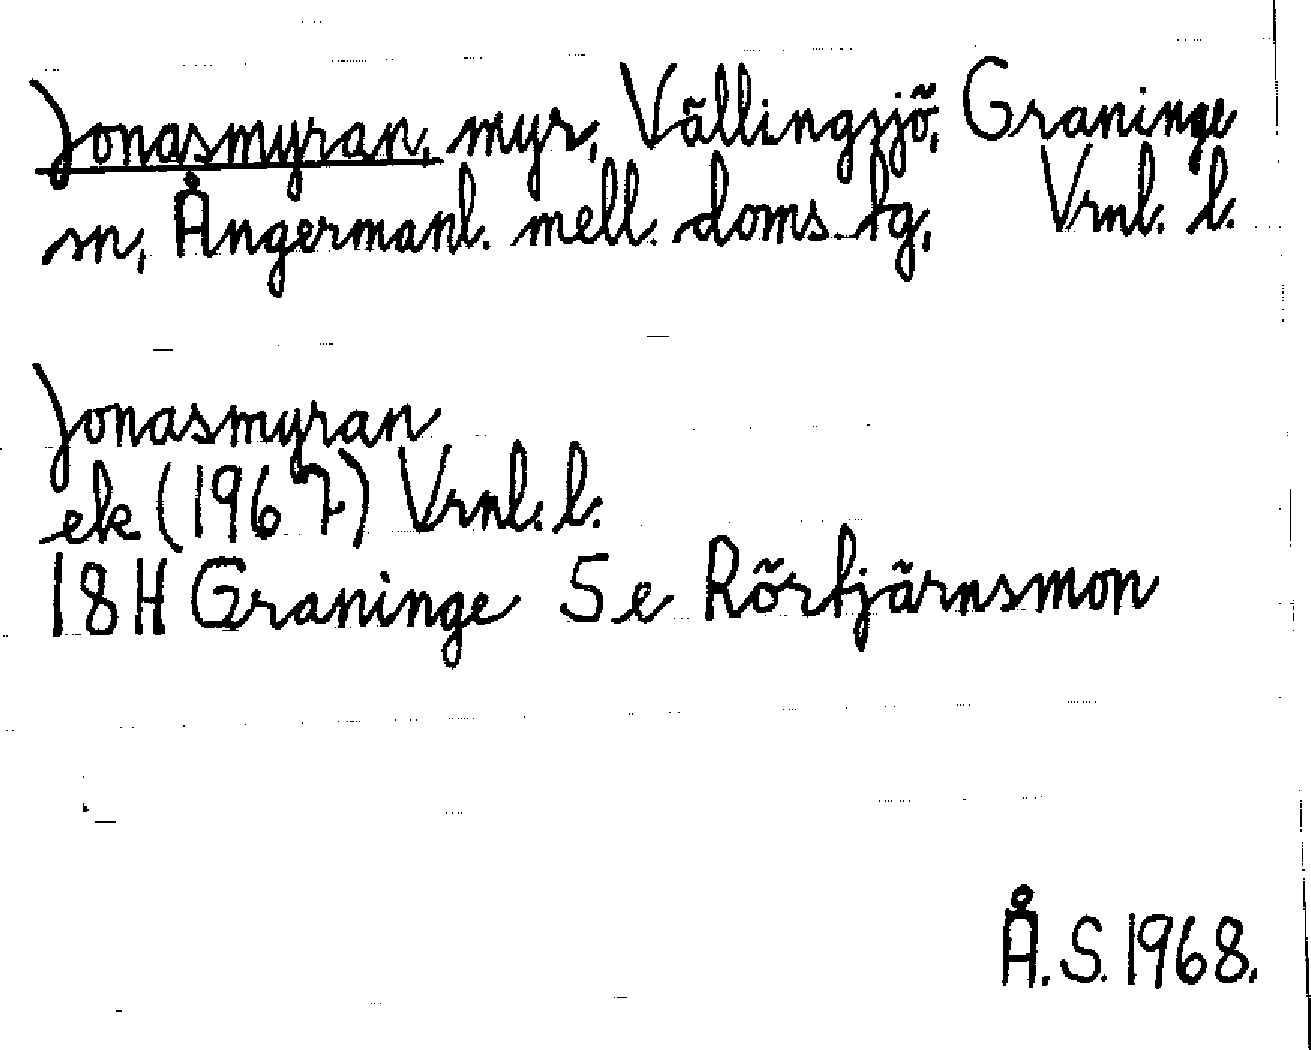 Jonasmyran, myr, Vällingsjö, Graninge
sn, Ångermanl. mell. doms. tg, Vrnl. l.
Jonasmyran
ek (1967) Vrnl. l.
18H Graninge 5e Rörtjärnsmon
Å.S. 1968.